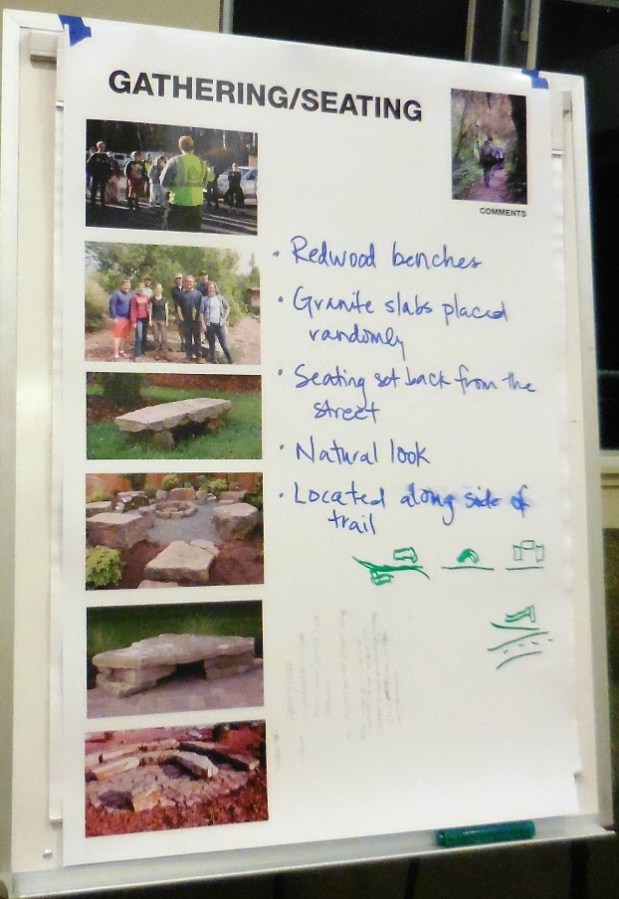 GATHERING/SEATING
COMMENTS
• Redwood benches
• Granite slabs placed
randomly
• Seating set back from the
street
• Natural look
• Located along side of
trail